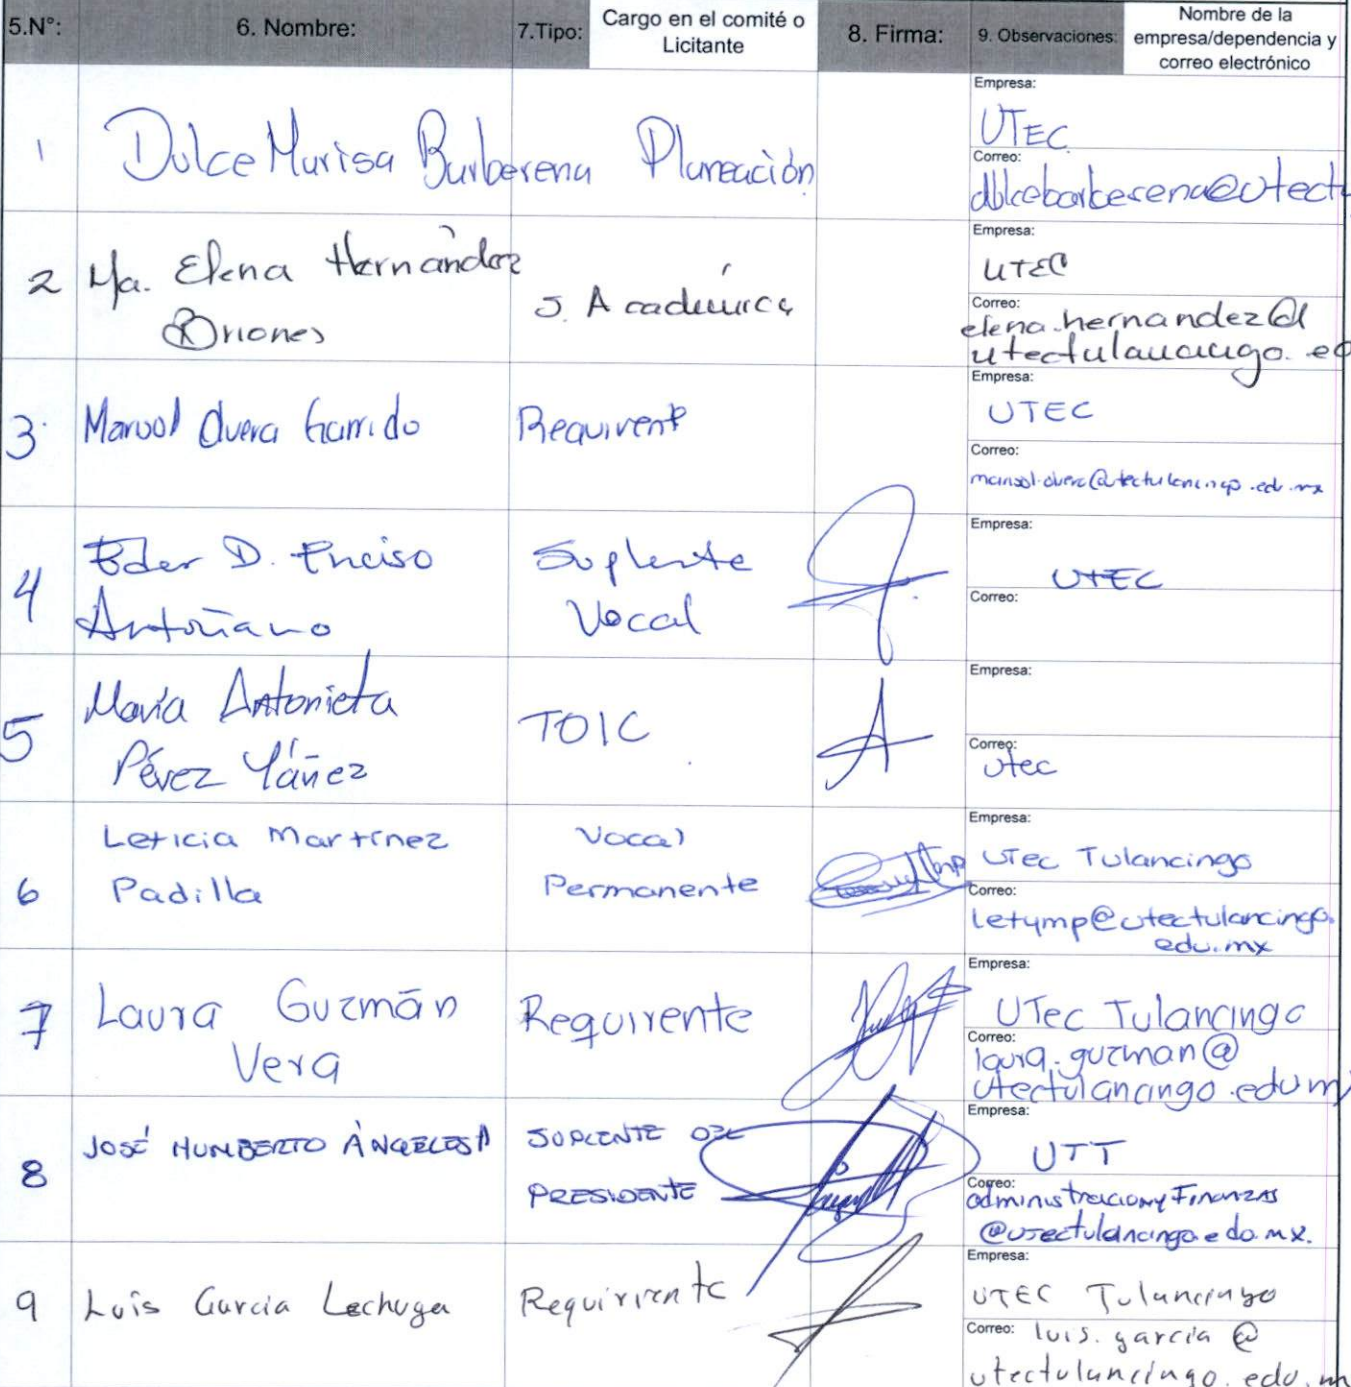 5.N°: 6. Nombre: 7.Tipo: Cargo en el comité o Licitante 8. Firma: 9. Observaciones: Nombre de la empresa/dependencia y correo electrónico
1 Dulce Marisa Barberena Planeación
Empresa: UTEC
Correo: dulcebarberena@utect
2 Ma. Elena Hernández
Briones
S. Académica
Empresa: UTEC
Correo: elena.hernandez@
utectulancingo.ed
3 Marisol Olvera Garrido Requirent
Empresa: UTEC
Correo: marisol.olvera@utectulancingo.edu.mx
4 Eder D. Enciso
Antoñano
Suplente
Vocal
Empresa: UTEC
Correo:
5 María Antonieta
Pérez Yáñez
TOIC
Empresa:
Correo: Utec
6 Leticia Martínez
Padilla
Vocal
Permanente
Empresa: UTec Tulancingo
Correo: Letymp@utectulancingo.
edu.mx
7 Laura Guzmán
Vera
Requirente
Empresa: UTec Tulancingo
Correo: laura.guzman@
utectulancingo.edu.m
8 JOSÉ HUMBERTO ÁNGELES A
SUPLENTE DEL
PRESIDENTE
Empresa: UTT
Correo: administracionyFinanzas
@utectulancingo.edu.mx.
9 Luis Garcia Lechuga Requirirente
Empresa: UTEC Tulancingo
Correo: luis.garcia@
utectulancingo.edu.m